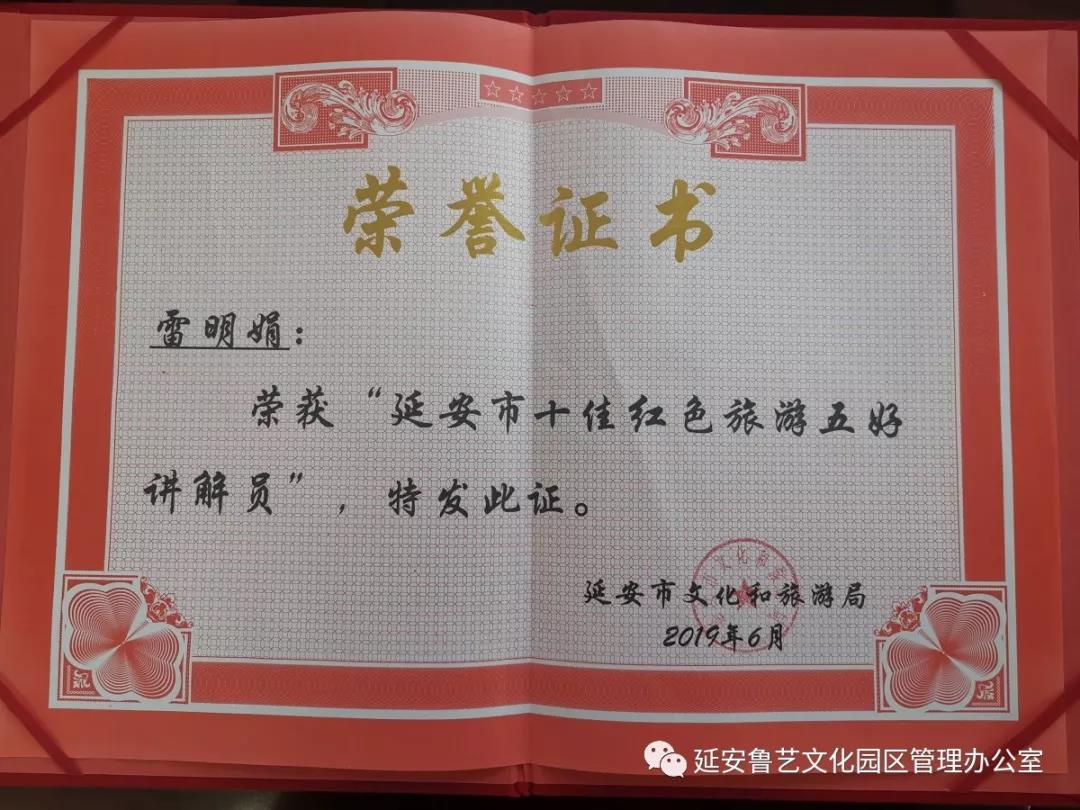 荣誉证书
雷明娟：
荣获“延安市十佳红色旅游五好
讲解员”，特发此证。
延安市文化和旅游局
2019年6月
延安鲁艺文化园区管理办公室